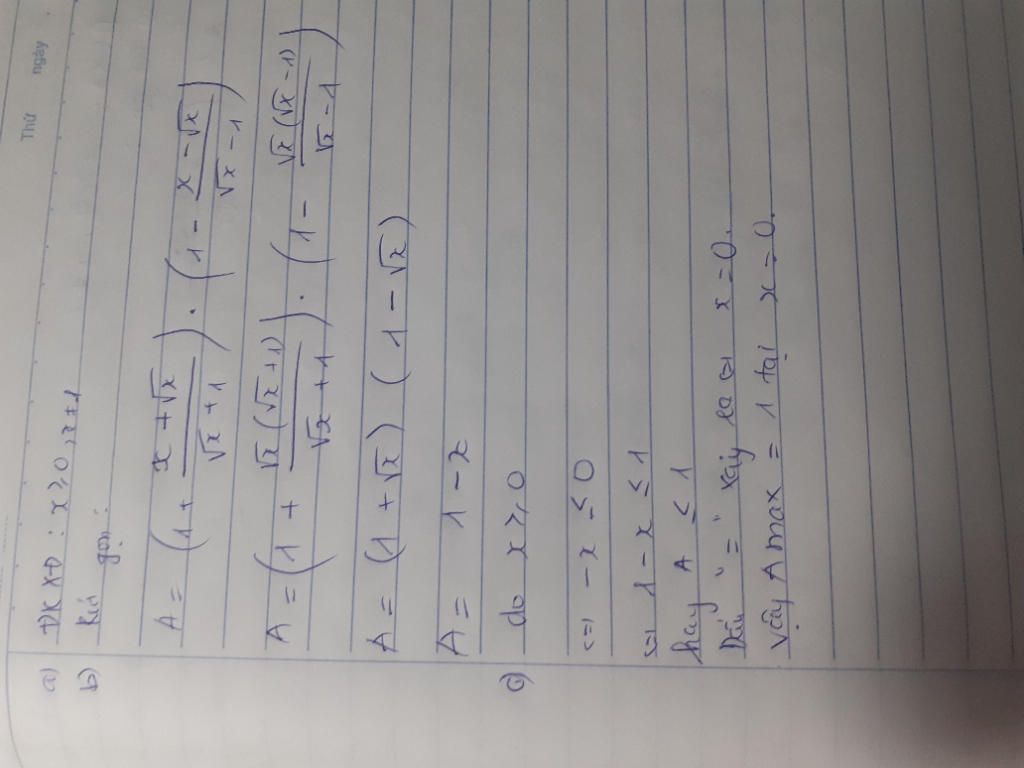 Thứ ngày
a) ĐKXĐ : x ≥ 0, x ≠ 1
b) Rút gọn :
A = (1 + \frac{x + √x}{√x + 1}) . (1 - \frac{x - √x}{√x - 1})
A = (1 + \frac{√x(√x + 1)}{√x + 1}) . (1 - \frac{√x(√x - 1)}{√x - 1})
A = (1 + √x) (1 - √x)
A = 1 - x
c) do x ≥ 0
<=> -x ≤ 0
<=> 1 - x ≤ 1
hay A ≤ 1
Dấu "=" xảy ra <=> x = 0.
Vậy A max = 1 tại x = 0.